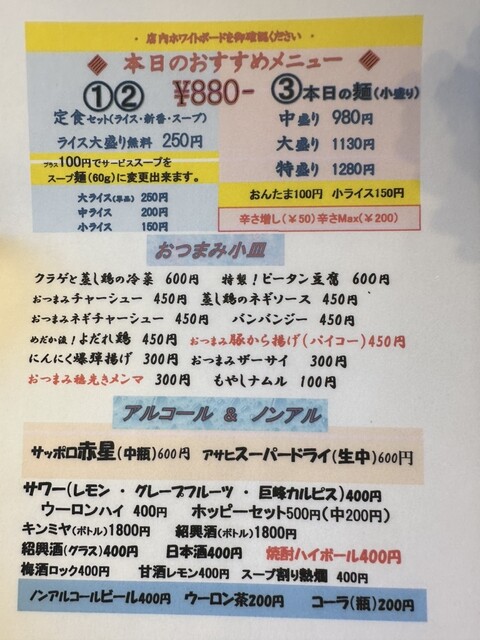 ・店内ホワイトボードを御確認ください・
◆ 本日のおすすめメニュー ◆
①② ¥880- ③本日の麺(小盛り)
定食セット(ライス・新香・スープ) 中盛り 980円
ライス大盛り無料 250円 大盛り 1130円
プラス100円でサービススープを 特盛り 1280円
スープ麺(60g)に変更出来ます。 おんたま100円 小ライス150円
大ライス(単品) 250円 辛さ増し(¥50)辛さMax(¥200)
中ライス 200円
小ライス 150円
おつまみ小皿
クラゲと蒸し鶏の冷菜 600円 特製!ピータン豆腐 600円
おつまみチャーシュー 450円 蒸し鶏のネギソース 450円
おつまみネギチャーシュー 450円 バンバンジー 450円
めだか流!よだれ鶏 450円 おつまみ豚から揚げ(パイコー)450円
にんにく爆弾揚げ 300円 おつまみザーサイ 300円
おつまみ穂先きメンマ 300円 もやしナムル 100円
アルコール & ノンアル
サッポロ赤星(中瓶)600円 アサヒスーパードライ(生中)600円
サワー(レモン・グレープフルーツ・巨峰カルピス)400円
ウーロンハイ 400円 ホッピーセット500円(中200円)
キンミヤ(ボトル)1800円 紹興酒(ボトル)1800円
紹興酒(グラス)400円 日本酒400円 焼酎ハイボール400円
梅酒ロック400円 甘酒レモン400円 スープ割り熱燗 400円
ノンアルコールビール400円 ウーロン茶200円 コーラ(瓶)200円